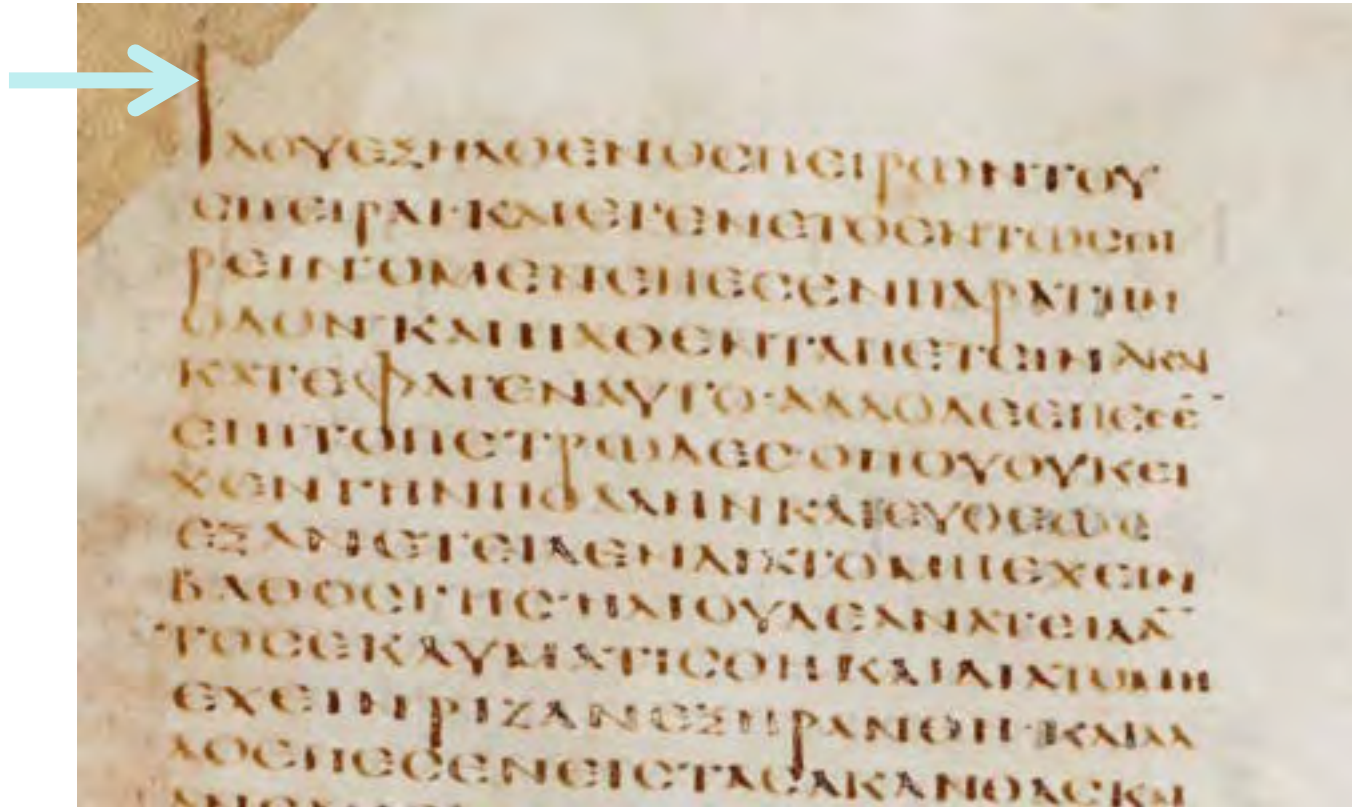 ΙΔΟΥΕΞΗΛΘΕΝΟϹΠΕΙΡΩΝΤΟΥ
ϹΠΕΙΡΑΙ·ΚΑΙΕΓΕΝΕΤΟΕΝΤΩϹΠΙ
ΡΕΙΝΤΟΜΕΝΕΠΕϹΕΝΠΑΡΑΤΗΝ
ΟΔΟΝ·ΚΑΙΗΛΘΕΝΤΑΠΕΤΕΙΝΑΚΑΙ
ΚΑΤΕΦΑΓΕΝΑΥΤΟ·ΑΛΛΟΔΕΕΠΕϹΕ¯
ΕΠΙΤΟΠΕΤΡΩΔΕϹ·ΟΠΟΥΟΥΚΕΙ
ΧΕΝΓΗΝΠΟΛΛΗΝΚΑΙΕΥΘΕΩϹ
ΕΞΑΝΕΤΕΙΛΕΝΔΙΑΤΟΜΗΕΧΕΙΝ
ΒΑΘΟϹΓΗϹ·ΗΛΙΟΥΔΕΑΝΑΤΕΙΛΑ¯
ΤΟϹΕΚΑΥΜΑΤΙϹΘΗΚΑΙΔΙΑΤΟΜΗ
ΕΧΕΙΝΡΙΖΑΝΕΞΗΡΑΝΘΗ·ΚΑΙΑΛ
ΛΟΕΠΕϹΕΝΕΙϹΤΑϹΑΚΑΝΘΑϹΚΑΙ